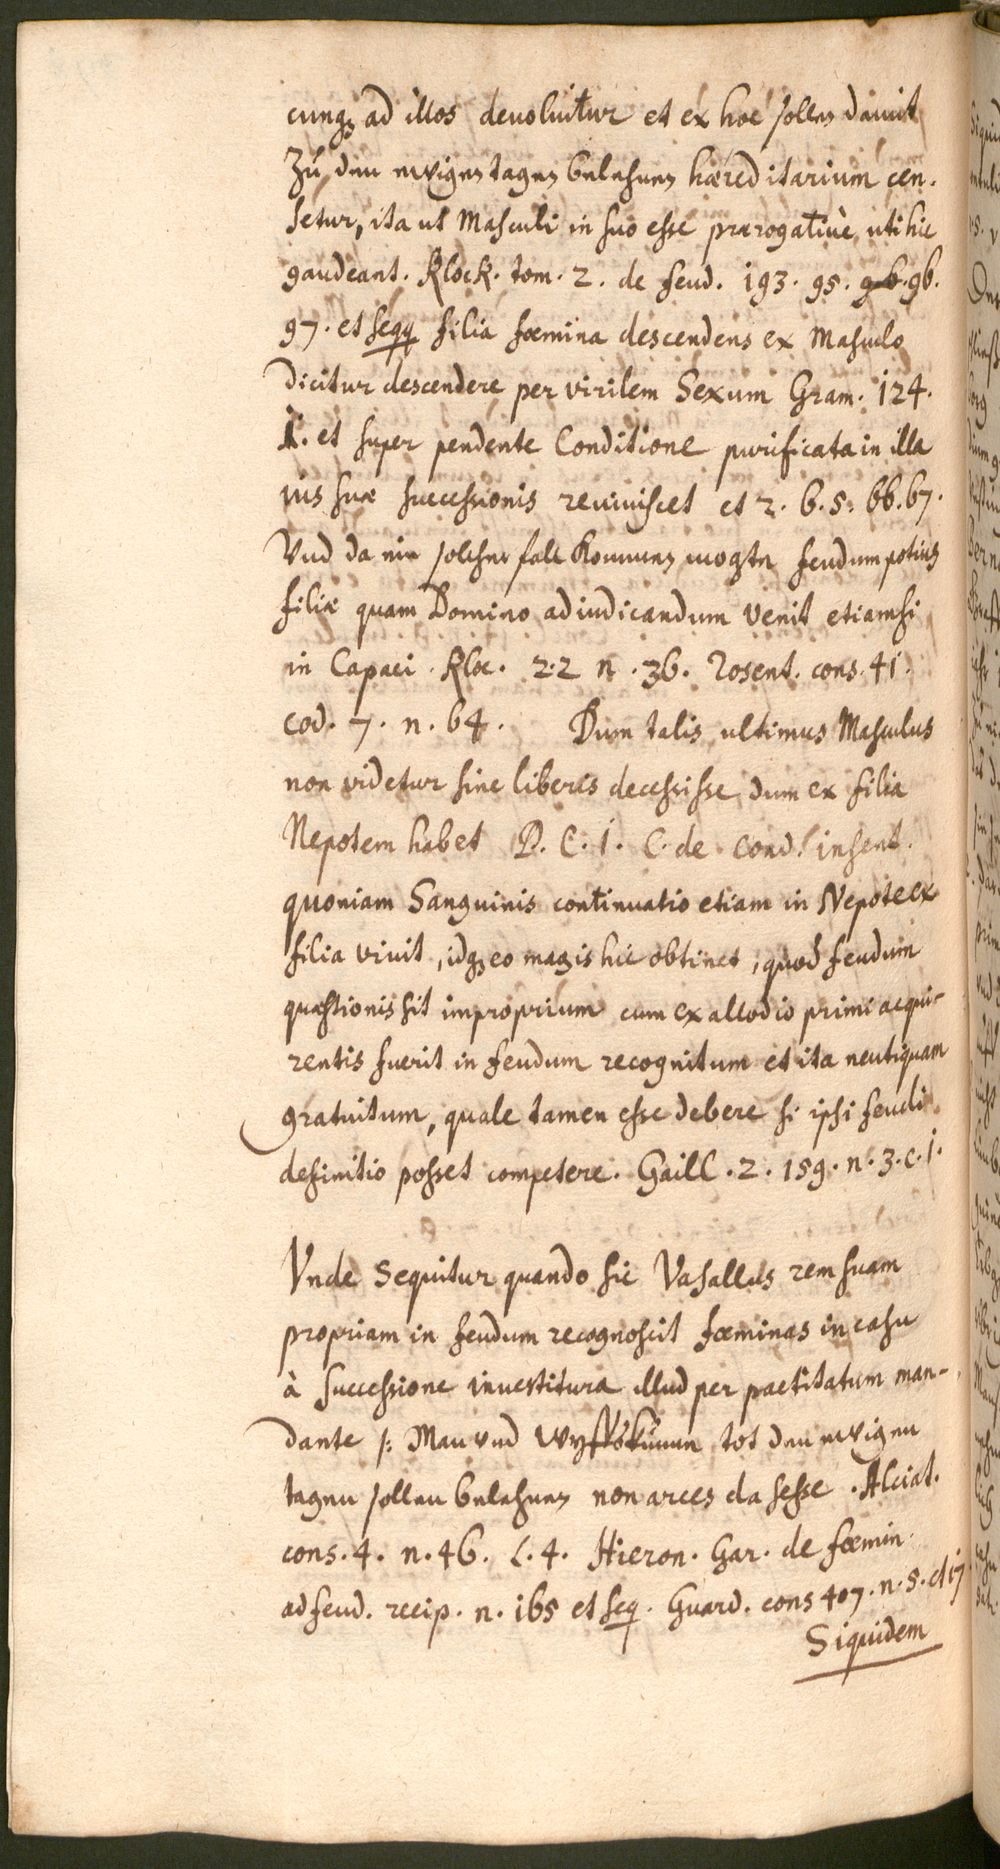 cunq3 ad illos devoluitur et ex hoc sollen damit
Zú den ewigen tagen belehnen hæreditarium cen.
setur, ita ut Masculi in suo esse prærogativè uti hic
gaudeant. Klock. tom. 2. de feud. 193. 95. 96.
97. et seqq filia fœmina descendens ex Masculo
dicitur descendere per virilem Sexum Gram. 124.
1. et super pendente Conditione purificata in illa
ius suæ successionis reuiuiscet et 2. 6. 5. 66. 67.
Vnd da ein solcher fall kommen mogte feudum potius
filiæ quam Domino adiudicandum venit etiamsi
in Capaci. Kloc. 22 n. 36. Rosent. cons. 41.
cod. 7. n. 64. Dum talis ultimus Masculus
non videtur sine liberis decessisse dum ex filia
Nepotem habet D. C. 1. C. de cond. insent.
quoniam Sanguinis continuatio etiam in Nepote ex
filia vivit, idq3 eo magis hic obtinet, quod feudum
quæstionis sit improprium cum ex allodio primi acqui-
rentis fuerit in feudum recognitum et ita neutiquam
gratuitum, quale tamen esse debere si ipsi feudi
definitio posset competere. Gaill. 2. 159. n. 3. c. 1.
Vnde Sequitur quando sic Vasallus rem suam
propriam in feudum recognoscit fœminas in casu
à successione investitura illud per pactitatum man-
dante /: Man vnd tot den ewigen
tagen sollen belehnen non arces da sesse. Alciat.
cons. 4. n. 46. C. 4. Hieron. Gar. de fœmin.
ad feud. recip. n. 165 et seq. Guard. cons 407. n. 5. et 17
Siquidem